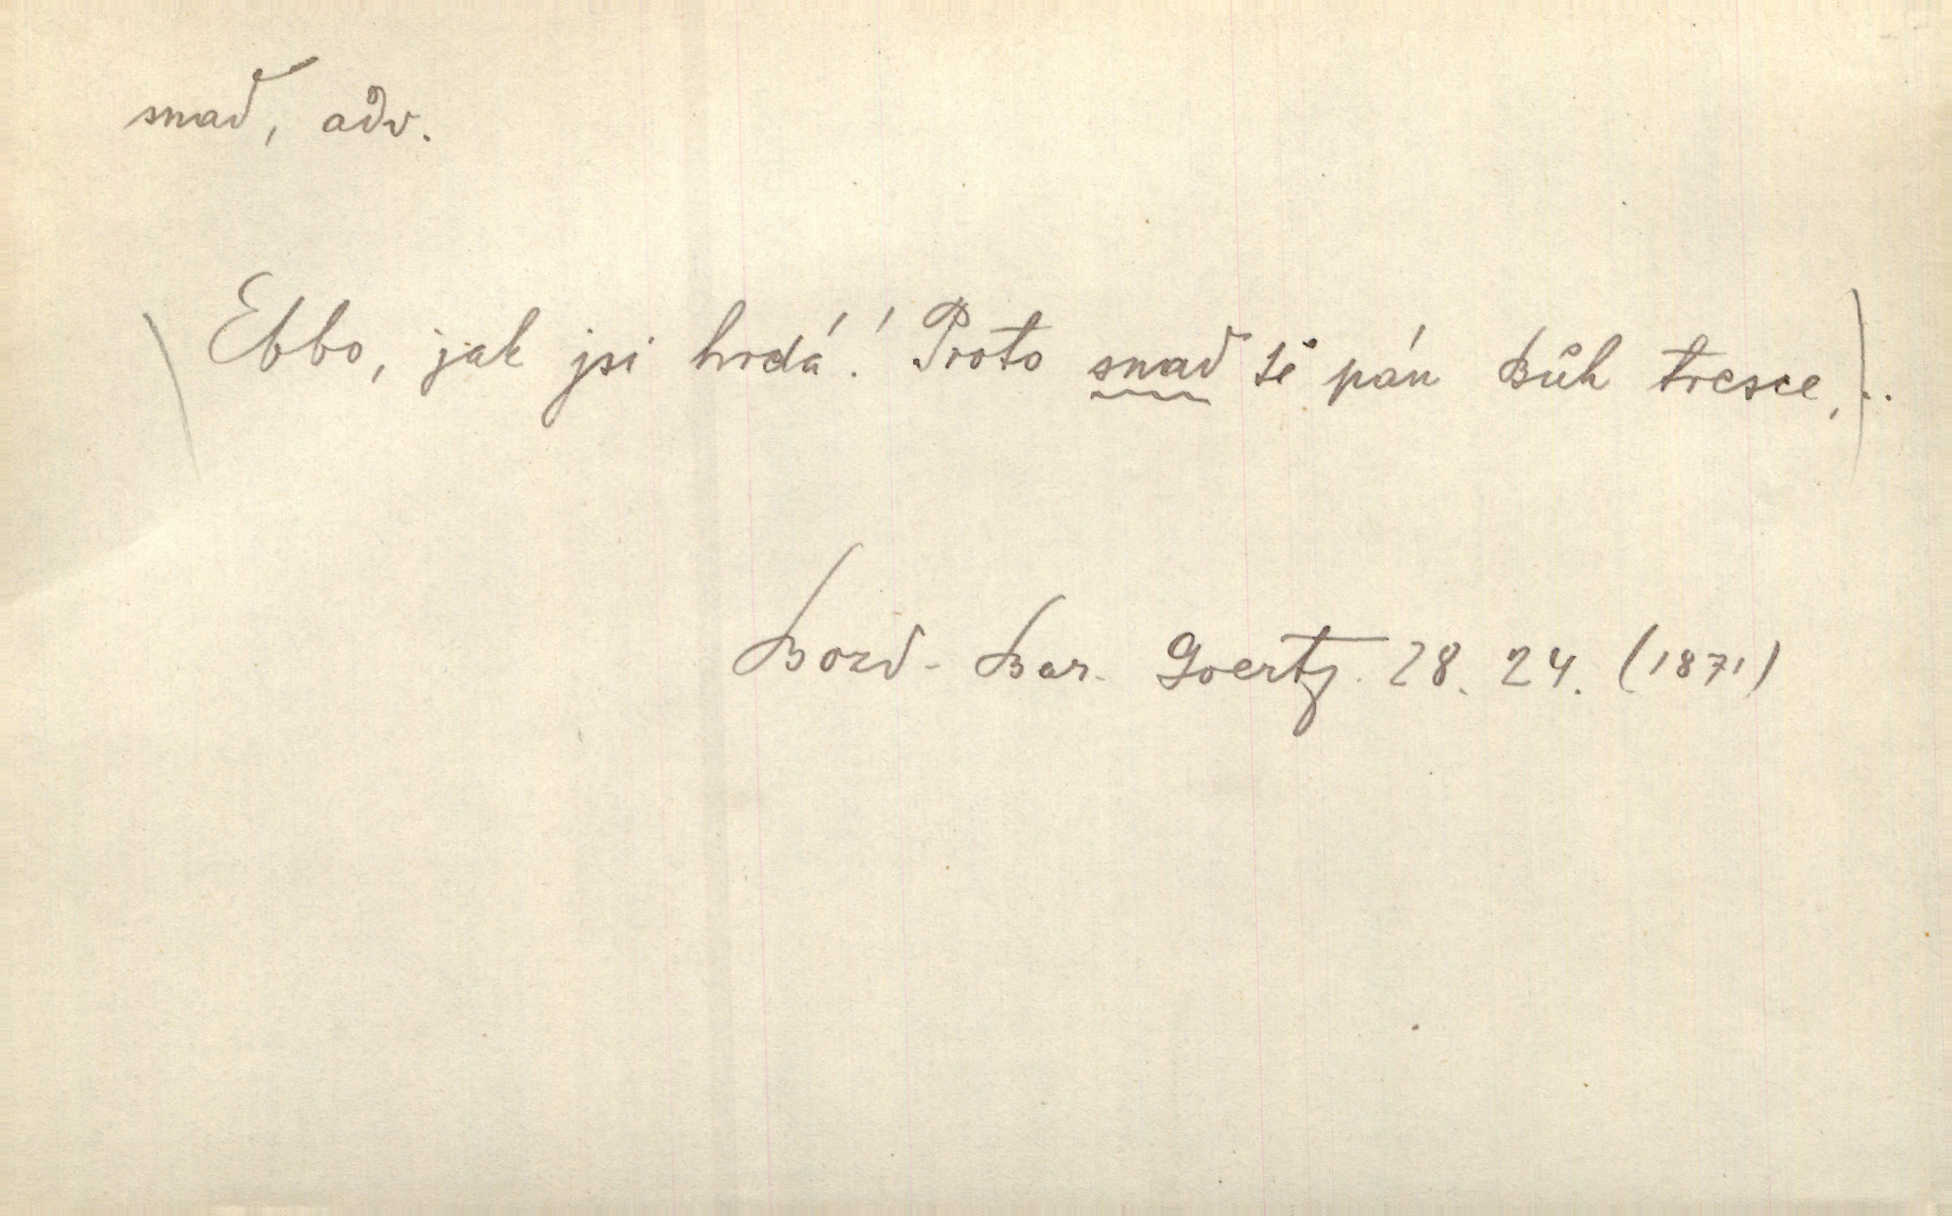 snad, adv.
Ebbo, jak jsi hrdá! Proto snad tě pán Bůh tresce, ..
Bozd. Bar. Goertz. 28. 24. (1871)